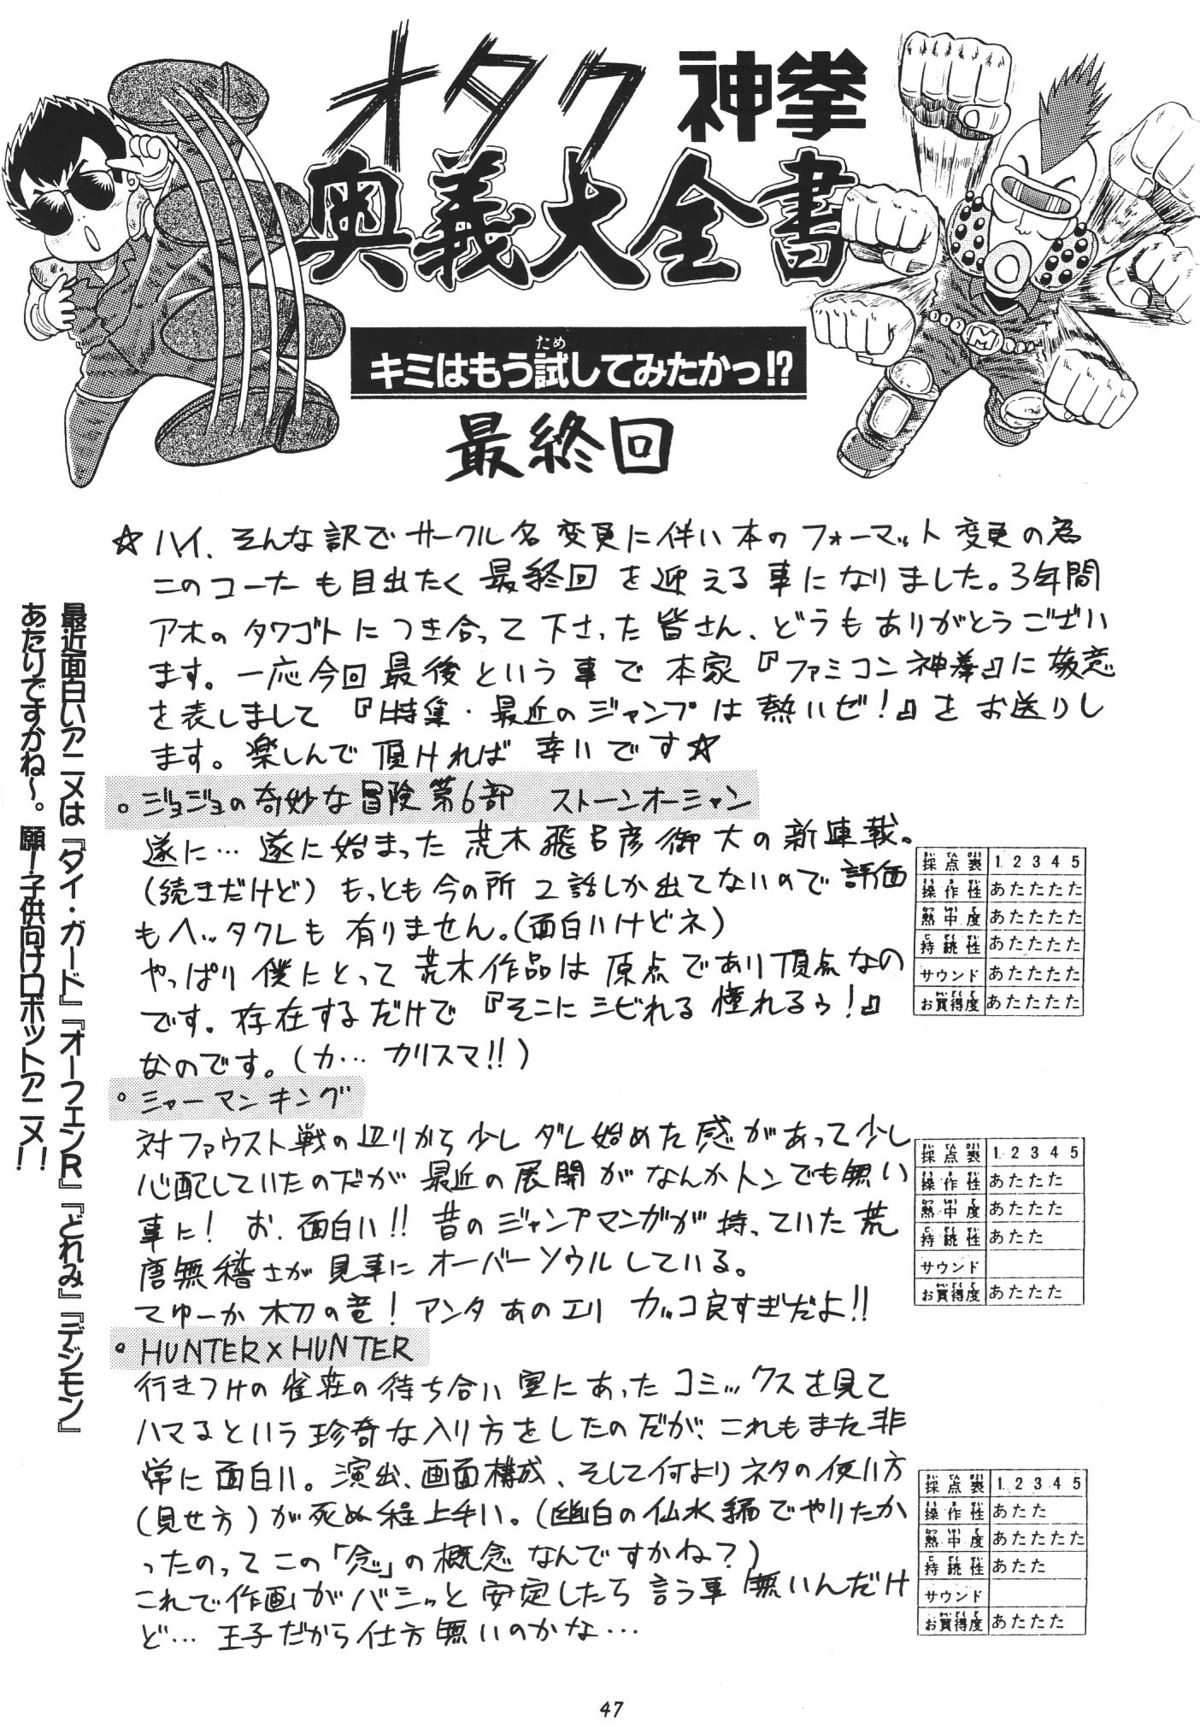 オタク 神拳
奥義大全書
ため
キミはもう試してみたかっ!?
最終回
☆ハイ、そんな訳でサークル名変更に伴い本のフォーマット変更の為
このコーナーも目出たく最終回を迎える事になりました。3年間
アホのタワゴトにつき合って下さった皆さん、どうもありがとうござい
ます。一応今回最後という事で本家『ファミコン神拳』に敬意
を表しまして『特集・最近のジャンプは熱いぜ!』をお送りし
ます。楽しんで頂ければ幸いです☆
。ジョジョの奇妙な冒険第6部 ストーンオーシャン
遂に…遂に始まった荒木飛呂彦御大の新連載。
(続きだけど)もっとも今の所2話しか出てないので評価
もヘッタクレも有りません。(面白いけどネ)
やっぱり僕にとって荒木作品は原点であり頂点なの
です。存在するだけで『そこにシビれる憧れるぅ!』
なのです。(カ…カリスマ!!)
さい てん ひょう
採点表 1 2 3 4 5
操作性 あたたたた
熱中度 あたたたた
持続性 あたたたた
サウンド あたたたた
お買得度 あたたたた
。シャーマンキング
対ファウスト戦の辺りから少しダレ始めた感があって少し
心配していたのだが最近の展開がなんかトンでも無い
事に!お、面白い!!昔のジャンプマンガが持っていた荒
唐無稽さが見事にオーバーソウルしている。
てゆーか木刀の竜!アンタあのエリ カッコ良すぎだよ!!
採点表 1 2 3 4 5
操作性 あたたた
熱中度 あたたた
持続性 あたた
サウンド
お買得度 あたたた
。HUNTER×HUNTER
行きつけの雀荘の待ち合い室にあったコミックスを見て
ハマるという珍奇な入り方をしたのだが、これもまた非
常に面白い。演出、画面構成、そして何よりネタの使い方
(見せ方)が死ぬ程上手い。(幽白の仙水編でやりたか
ったのってこの「念」の概念なんですかね?)
これで作画がバシッと安定したら言う事無いんだけ
ど…王子だから仕方無いのかな…
採点表 1 2 3 4 5
操作性 あたた
熱中度 あたたたた
持続性 あたた
サウンド
お買得度 あたたた
最近面白いアニメは『ダイ・ガード』『オーフェンR』『どれみ』『デジモン』
あたりですかね～。願!子供向けロボットアニメ!!
M
47